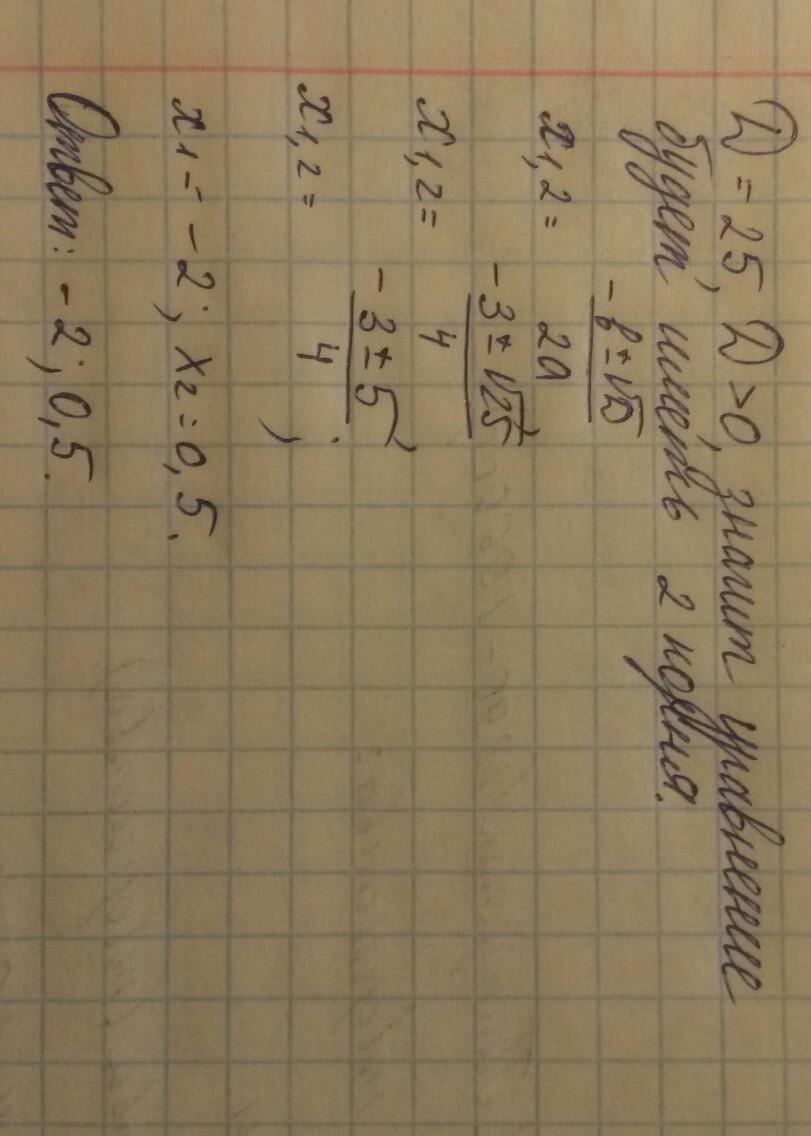 D = 25, D > 0, значит уравнение
будет иметь 2 корня.
x1,2 = (-b ± √D) / 2a
x1,2 = (-3 ± √25) / 4 ,
x1,2 = (-3 ± 5) / 4 ;
x1 = -2; x2 = 0,5.
Ответ: -2; 0,5.